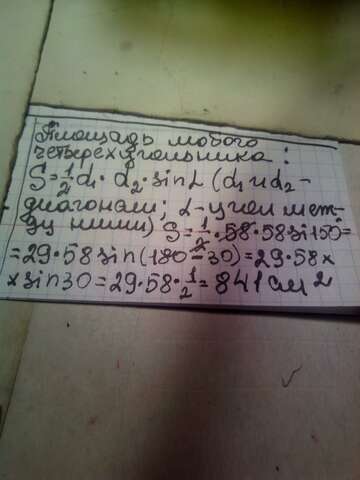 Площадь любого
четерехугольника:
S=1/2 d₁· d₂·sin L (d₁ и d₂-
диагонали; α-угол меж-
ду ними) S=1/2·58·58sin150=
=29·58 sin(180-30)=29·58×
×sin30=29·58·1/2=841 см²